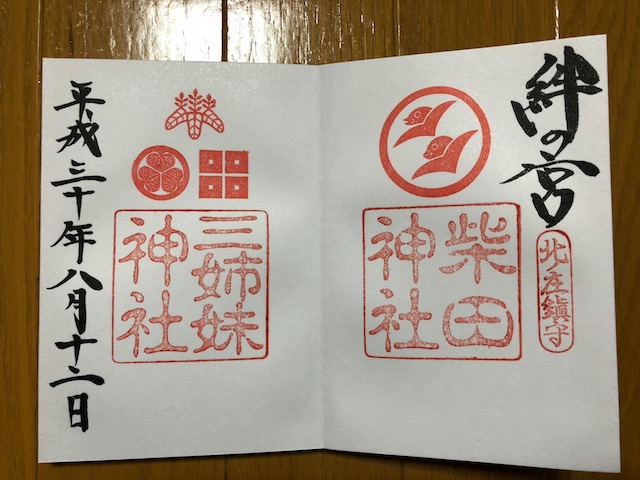 絆の宮
北ノ庄鎮守
柴田
神社
三姉妹
神社
平成三十年八月十二日